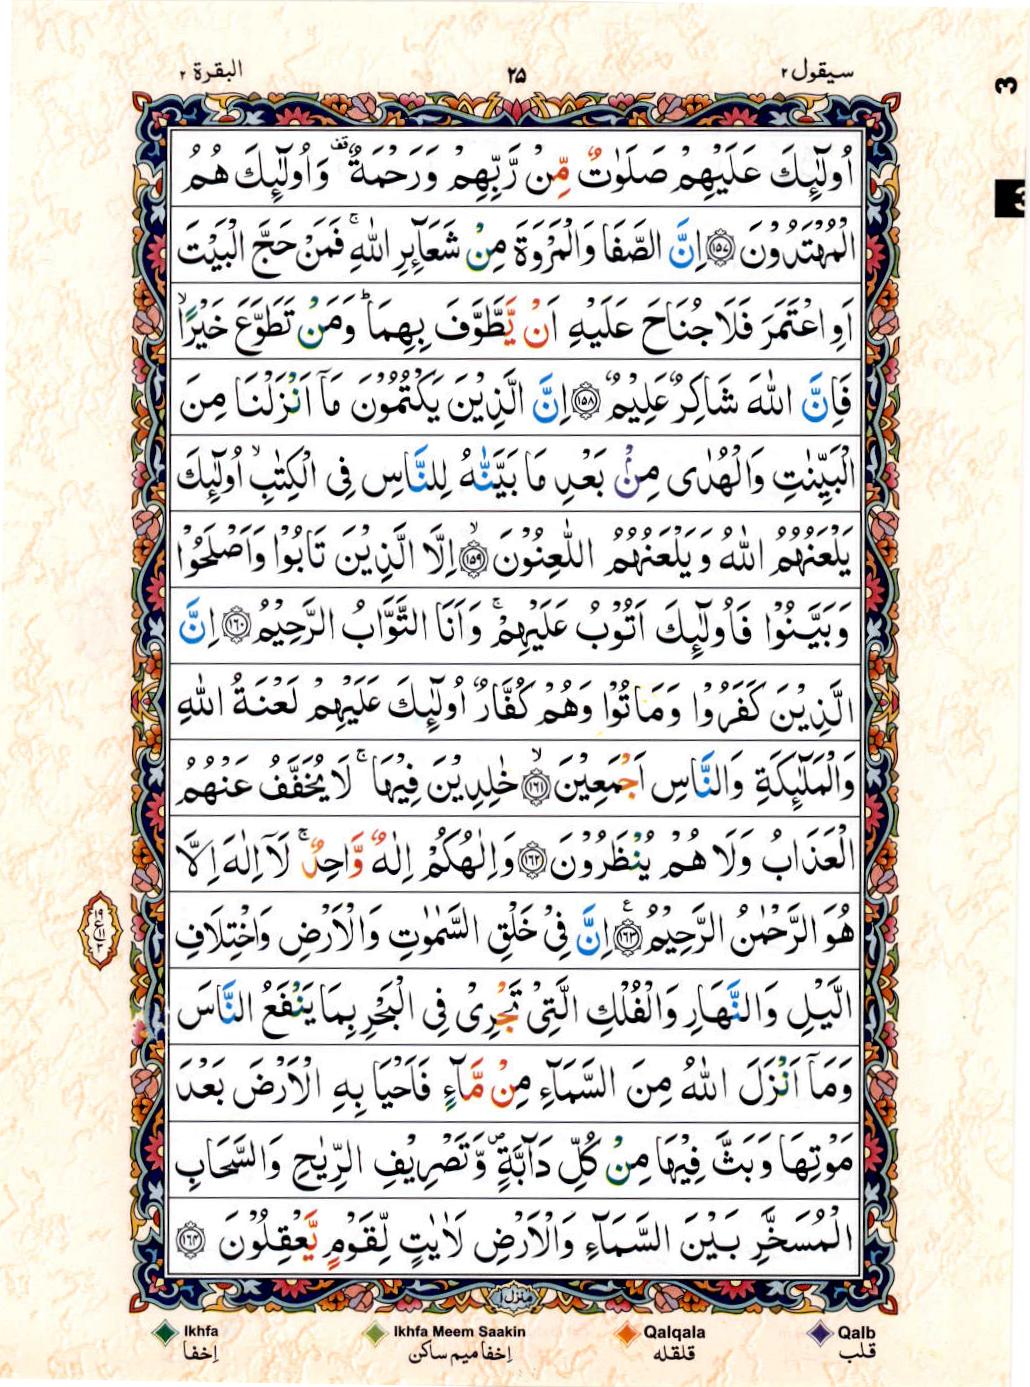 سيقول ٢
٢٥
البقرة ٢
3
3
اُولٰٓئِكَ عَلَيْهِمْ صَلَوٰتٌ مِّنْ رَّبِّهِمْ وَرَحْمَةٌ ۫ وَاُولٰٓئِكَ هُمُ
الْمُهْتَدُوْنَ ﴿١٥٧﴾ اِنَّ الصَّفَا وَالْمَرْوَةَ مِنْ شَعَآئِرِ اللّٰهِ ۚ فَمَنْ حَجَّ الْبَيْتَ
اَوِ اعْتَمَرَ فَلَا جُنَاحَ عَلَيْهِ اَنْ يَّطَّوَّفَ بِهِمَا ؕ وَمَنْ تَطَوَّعَ خَيْرًا ۙ
فَاِنَّ اللّٰهَ شَاكِرٌ عَلِيْمٌ ﴿١٥٨﴾ اِنَّ الَّذِيْنَ يَكْتُمُوْنَ مَآ اَنْزَلْنَا مِنَ
الْبَيِّنٰتِ وَالْهُدٰى مِنْۢ بَعْدِ مَا بَيَّنّٰهُ لِلنَّاسِ فِى الْكِتٰبِ ۙ اُولٰٓئِكَ
يَلْعَنُهُمُ اللّٰهُ وَيَلْعَنُهُمُ اللّٰعِنُوْنَ ۙ﴿١٥٩﴾ اِلَّا الَّذِيْنَ تَابُوْا وَاَصْلَحُوْا
وَبَيَّنُوْا فَاُولٰٓئِكَ اَتُوْبُ عَلَيْهِمْ ۚ وَاَنَا التَّوَّابُ الرَّحِيْمُ ﴿١٦٠﴾ اِنَّ
الَّذِيْنَ كَفَرُوْا وَمَاتُوْا وَهُمْ كُفَّارٌ اُولٰٓئِكَ عَلَيْهِمْ لَعْنَةُ اللّٰهِ
وَالْمَلٰٓئِكَةِ وَالنَّاسِ اَجْمَعِيْنَ ۙ﴿١٦١﴾ خٰلِدِيْنَ فِيْهَا ۚ لَا يُخَفَّفُ عَنْهُمُ
الْعَذَابُ وَلَا هُمْ يُنْظَرُوْنَ ﴿١٦٢﴾ وَاِلٰهُكُمْ اِلٰهٌ وَّاحِدٌ ۚ لَآ اِلٰهَ اِلَّا
هُوَ الرَّحْمٰنُ الرَّحِيْمُ ﴿١٦٣﴾ ع اِنَّ فِيْ خَلْقِ السَّمٰوٰتِ وَالْاَرْضِ وَاخْتِلَافِ
الَّيْلِ وَالنَّهَارِ وَالْفُلْكِ الَّتِيْ تَجْرِيْ فِى الْبَحْرِ بِمَا يَنْفَعُ النَّاسَ
وَمَآ اَنْزَلَ اللّٰهُ مِنَ السَّمَآءِ مِنْ مَّآءٍ فَاَحْيَا بِهِ الْاَرْضَ بَعْدَ
مَوْتِهَا وَبَثَّ فِيْهَا مِنْ كُلِّ دَآبَّةٍ ۪ وَّتَصْرِيْفِ الرِّيٰحِ وَالسَّحَابِ
الْمُسَخَّرِ بَيْنَ السَّمَآءِ وَالْاَرْضِ لَاٰيٰتٍ لِّقَوْمٍ يَّعْقِلُوْنَ ﴿١٦٤﴾
١٩
ع ١١
٣
منزل ١
Ikhfa
Ikhfa Meem Saakin
Qalqala
Qalb
إخفا
إخفا ميم ساكن
قلقله
قلب